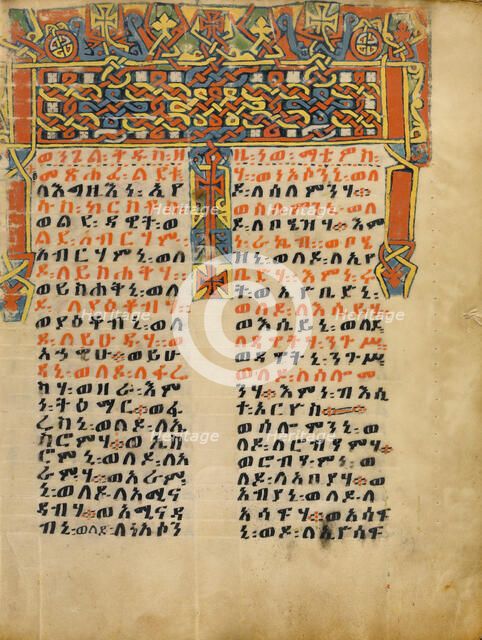 ወንጌል፡ቅዱስ፡ዘ
ዜነወ፡ማቴዎስ፡
መጽሐፈ፡ልደቱ፡
ለእግዚእነ፡ኢየ
ሱስ፡ክርስቶስ፡
ወልደ፡ዳዊት፡ወ
ልደ፡አብርሃም፡
አብርሃምኒ፡ወለ
ዶ፡ለይስሐቅሃ፡
ወይስሐቅኒ፡ወለ
ዶ፡ለያዕቆብሃ፡
ወያዕቆብኒ፡ወለ
ዶ፡ለይሁዳሃ፡ወ
አኃዊሁ፡ወይሁ
ዳኒ፡ወለዶ፡ለፋሬ
ስሃ፡ወዘራ፡እም
ነ፡ትዕማር፡ወፋ
ሬስኒ፡ወለዶ፡ለኤ
ስሮምሃ፡ወኤስ
ሮምኒ፡ወለዶ፡ለአ
ራምሃ፡ወአራም
ኒ፡ወለዶ፡ለአሚና
ዳብሃ፡ወአሚናዳ
ብኒ፡ወለዶ፡ለነአሶን
ሃ፡ነአሶንኒ፡ወለ
ዶ፡ለሰልሞንሃ፡
ወሰልሞንኒ፡ወለ
ዶ፡ለቦዔዝሃ፡እም
ነ፡ራኬብ፡ወቦዔ
ዝኒ፡ወለዶ፡ለኢዮ
ቤድሃ፡እምነ፡ሩ
ት፡ወኢዮቤድኒ፡
ወለዶ፡ለእሴይሃ
ወእሴይኒ፡ወለዶ
ለዳዊትሃ፡ንጉሥ፡
ወዳዊትኒ፡ንጉሥ፡
ወለዶ፡ለሰሎሞ
ንሃ፡እምነ፡ብእሲ
ተ፡ኦርዮ
ወሰሎሞንኒ፡ወለ
ዶ፡ለሮብዓምሃ
ወሮብዓምኒ፡ወ
ለዶ፡ለአብያሃ
አብያኒ፡ወለዶ፡ለ
አሳፍሃ፡ወአሳፍ
ኒ፡ወለዶ፡ለኢዮሳፍ